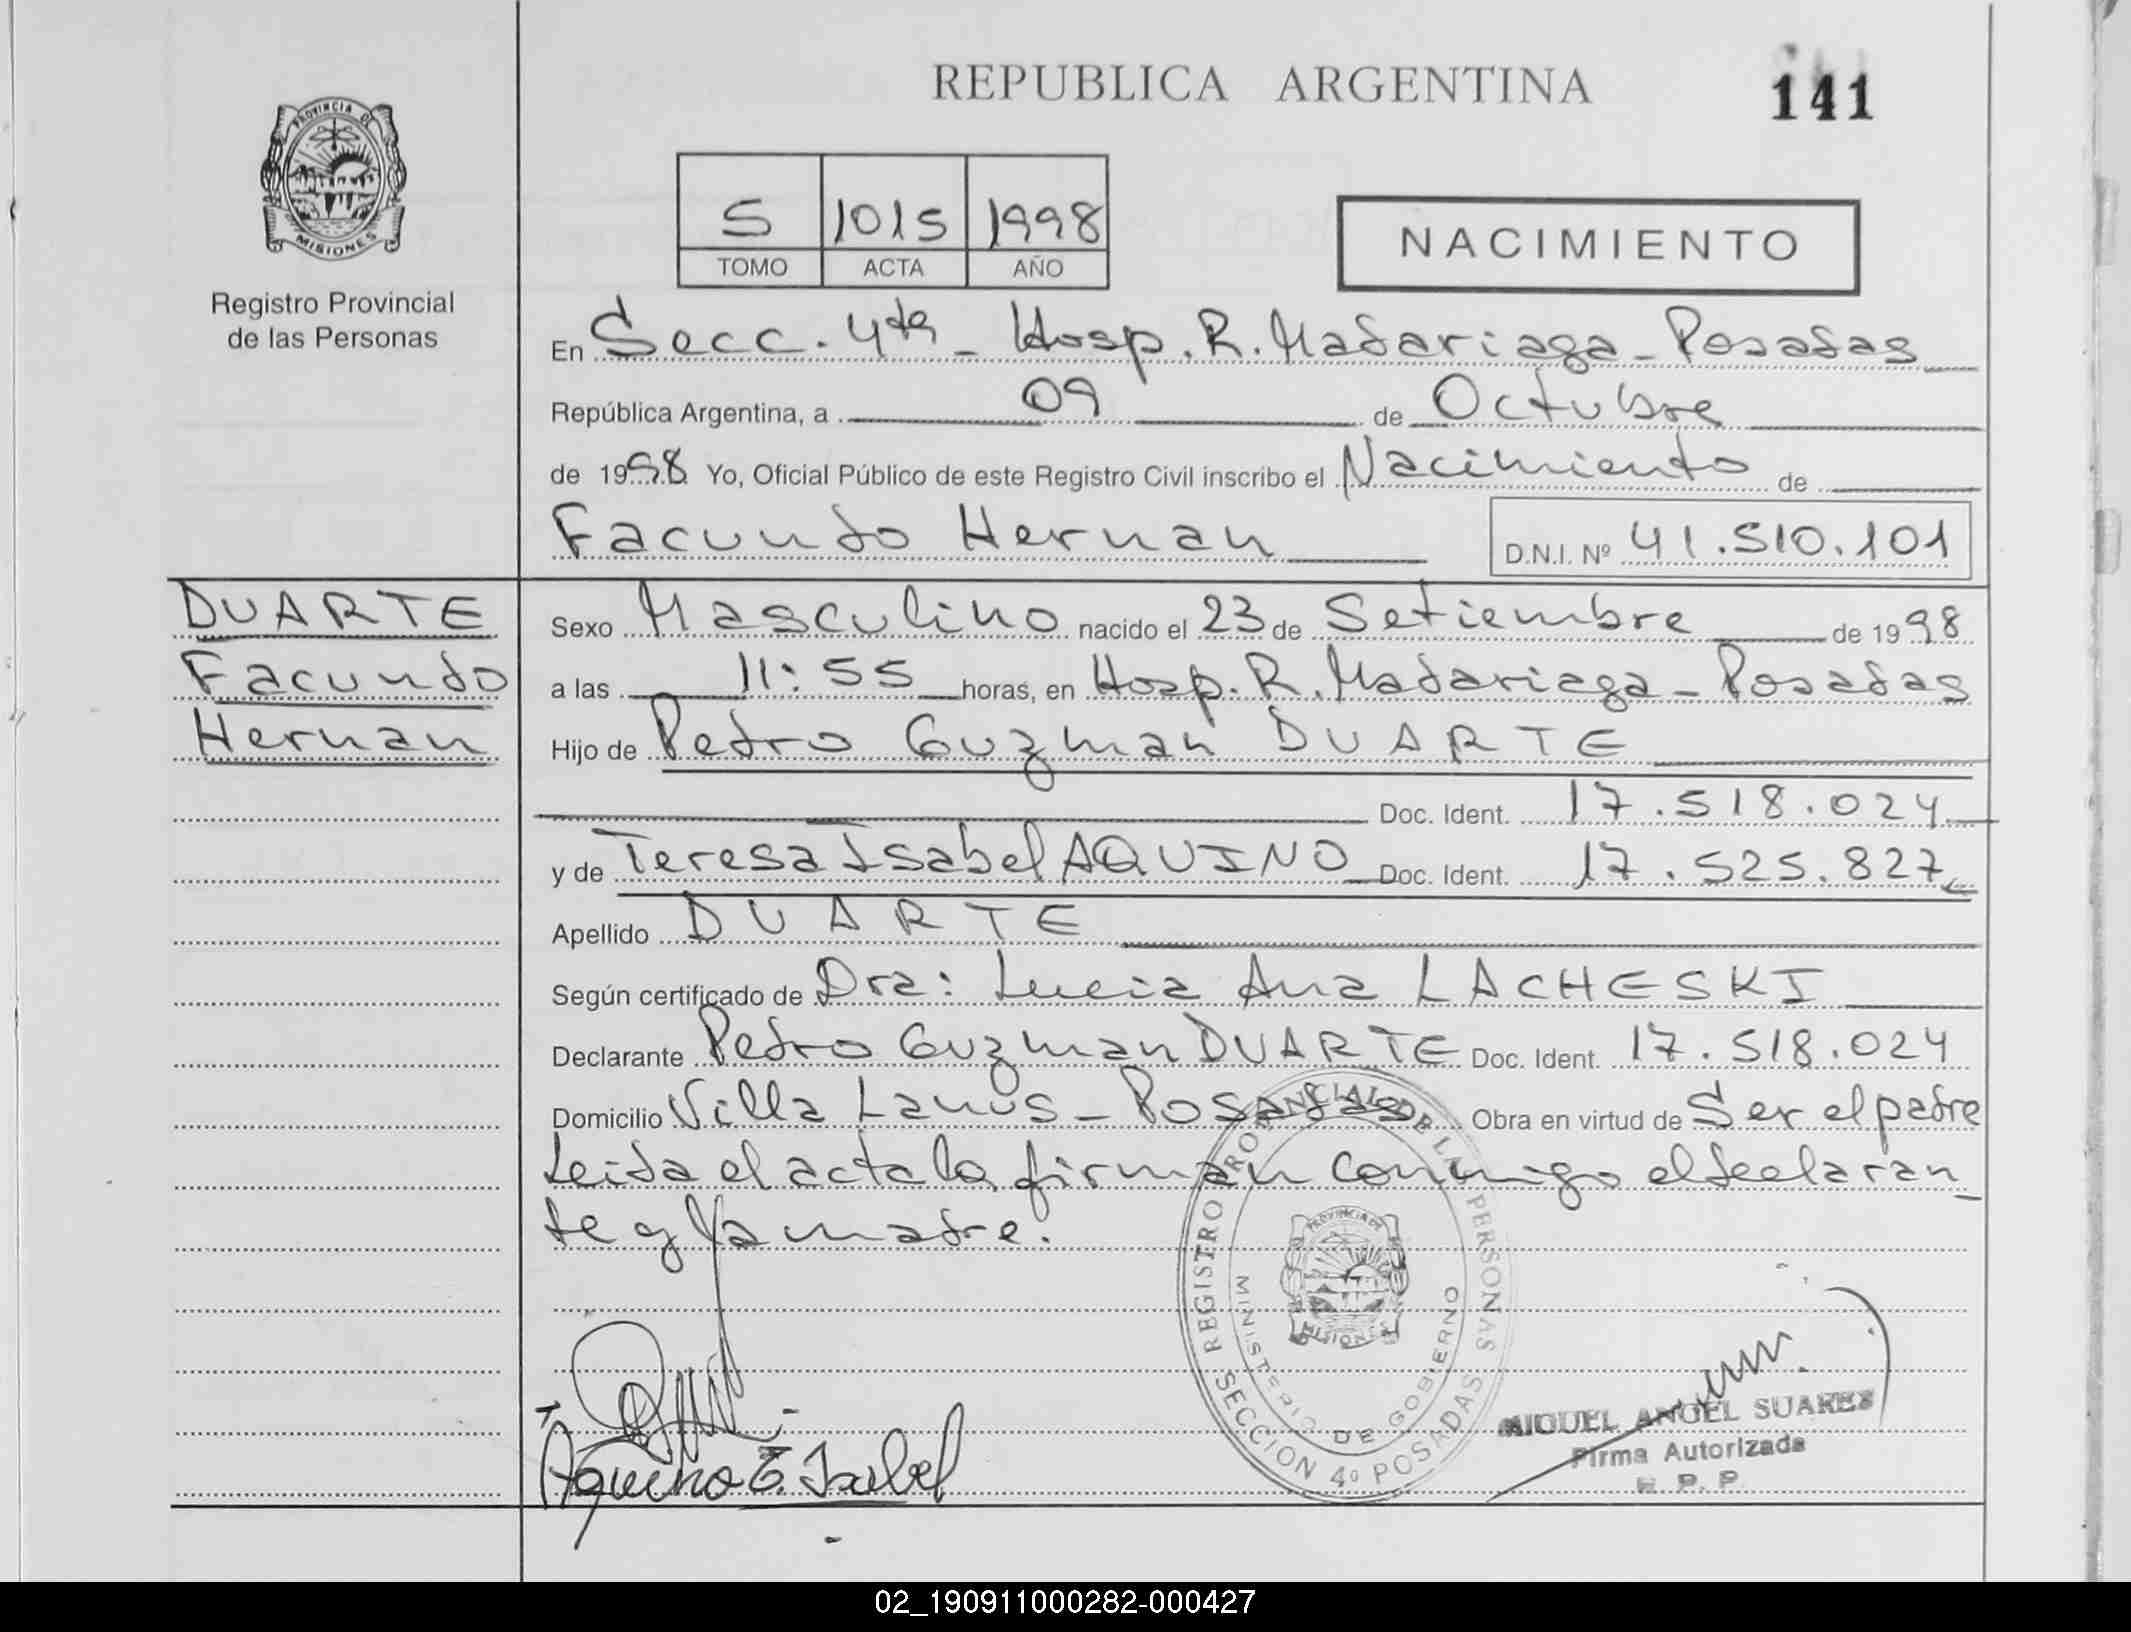 REPUBLICA ARGENTINA
141
PROVINCIA DE
MISIONES
Registro Provincial
de las Personas
5 1015 1998
TOMO ACTA AÑO
NACIMIENTO
En Secc. 4ta - Hosp. R. Madariaga - Posadas
República Argentina, a 09 de Octubre
de 1998 Yo, Oficial Público de este Registro Civil inscribo el Nacimiento de
Facundo Hernan D.N.I. Nº 41.510.101
DUARTE
Facundo
Hernan
Sexo Masculino nacido el 23 de Setiembre de 1998
a las 11:55 horas, en Hosp. R. Madariaga - Posadas
Hijo de Pedro Guzman DUARTE
Doc. Ident. 17.518.024
y de Teresa Isabel AQUINO Doc. Ident. 17.525.827
Apellido DUARTE
Según certificado de Dra: Lucia Ana LACHESKI
Declarante Pedro Guzman DUARTE Doc. Ident. 17.518.024
Domicilio Villa Lanus - Posadas Obra en virtud de Ser el padre
Leida el acta la firman conmigo el declaran_
te y la madre.
REGISTRO PROVINCIAL DE LAS PERSONAS
SECCION 4º POSADAS
MINISTERIO DE GOBIERNO
PROVINCIA DE
MISIONES
Aquino T. Isabel
MIGUEL ANGEL SUAREZ
Firma Autorizada
R. P. P.
02_190911000282-000427